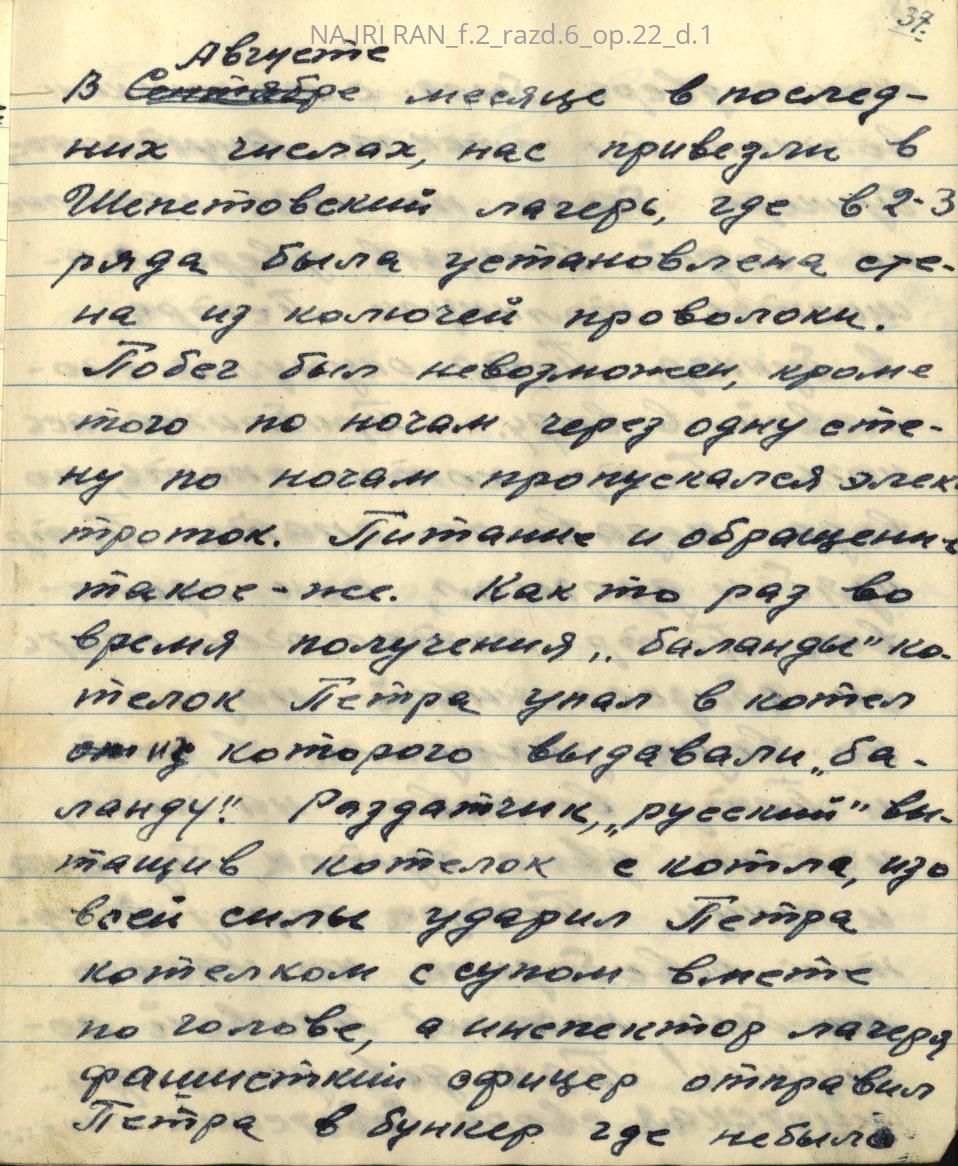 NAJRI RAN_f.2_razd.6_op.22_d.1
37.
Августе
В Сентябре месяце в послед-
них числах, нас привезли в
Шепетовский лагерь, где в 2-3
ряда была установлена сте-
на из колючей проволоки.
Побег был невозможен, кроме
того по ночам через одну сте-
ну по ночам пропускался элек
троток. Питание и обращение
такое-же. Как то раз во
время получения „баланды" ко-
телок Петра упал в котел
из которого выдавали „ба-
ланду". Раздатчик, „русский" вы-
тащив котелок с котла, изо
всей силы ударил Петра
котелком с супом вмете
по голове, а инспектор лагеря
фашисткий офицер отправил
Петра в бункер где небыло